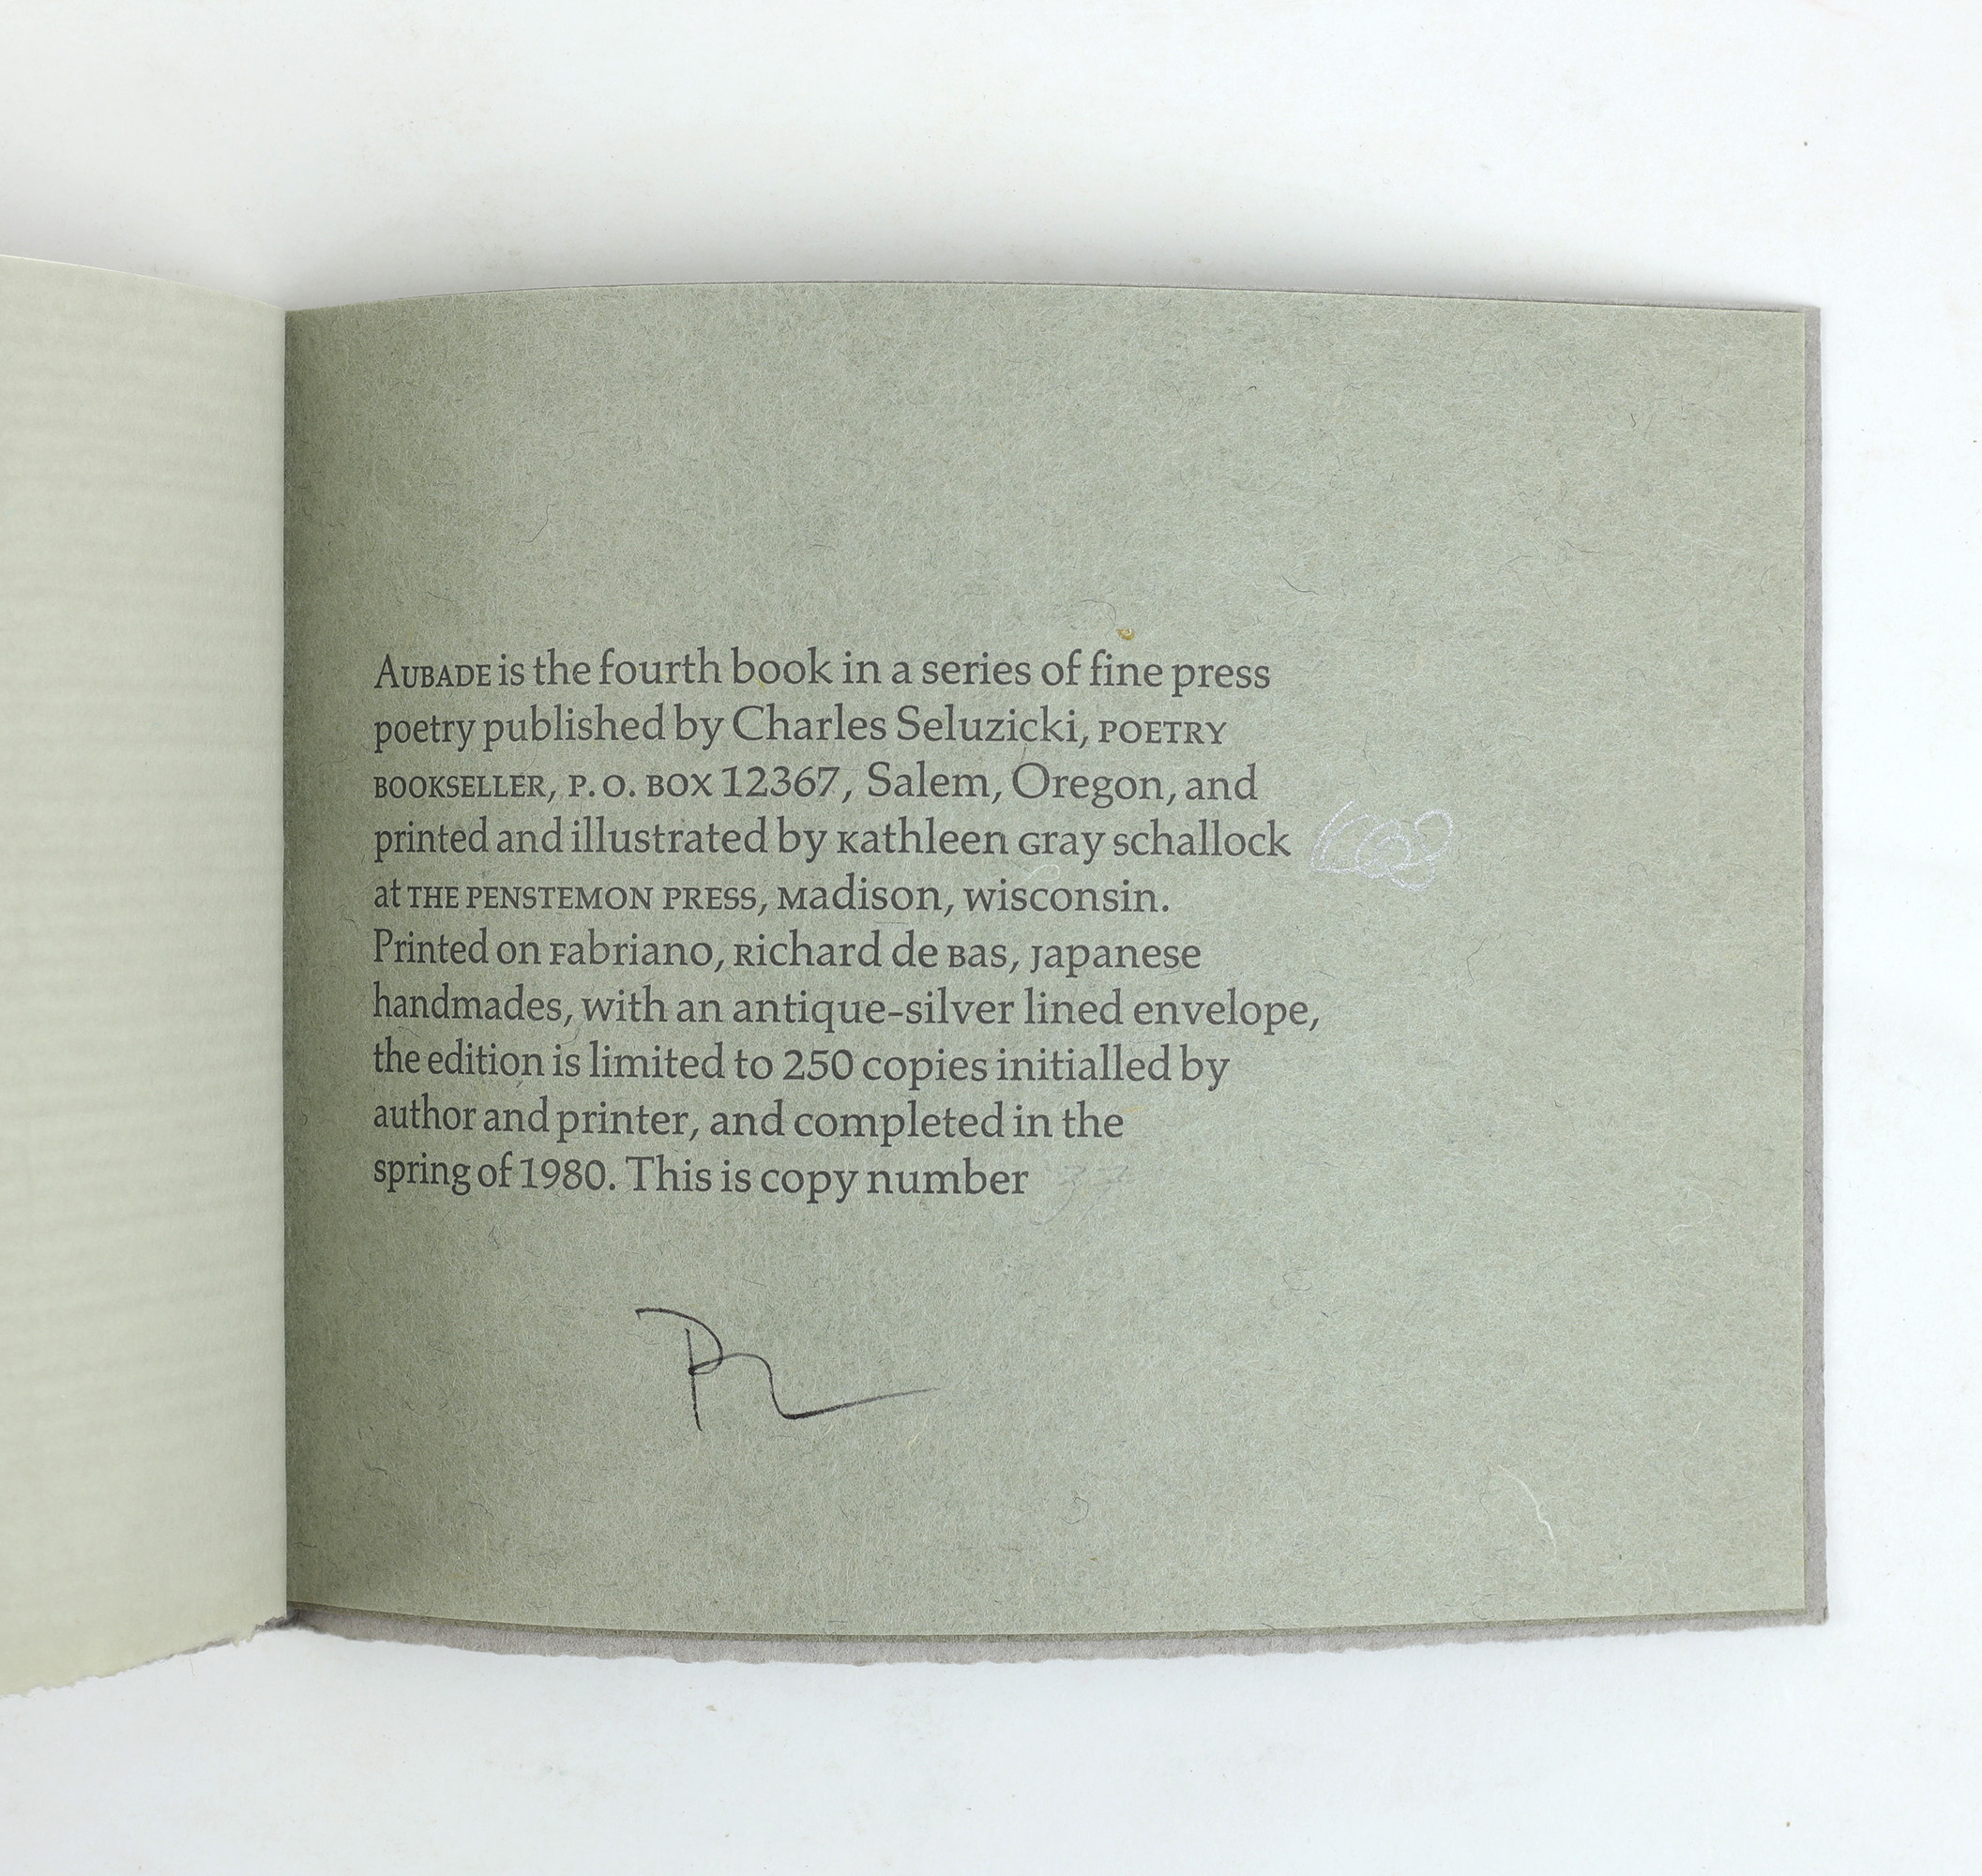 AUBADE is the fourth book in a series of fine press
poetry published by Charles Seluzicki, POETRY
BOOKSELLER, P. O. BOX 12367, Salem, Oregon, and
printed and illustrated by Kathleen Gray Schallock
at THE PENSTEMON PRESS, Madison, Wisconsin.
Printed on Fabriano, Richard de Bas, Japanese
handmades, with an antique-silver lined envelope,
the edition is limited to 250 copies initialled by
author and printer, and completed in the
spring of 1980. This is copy number
PL